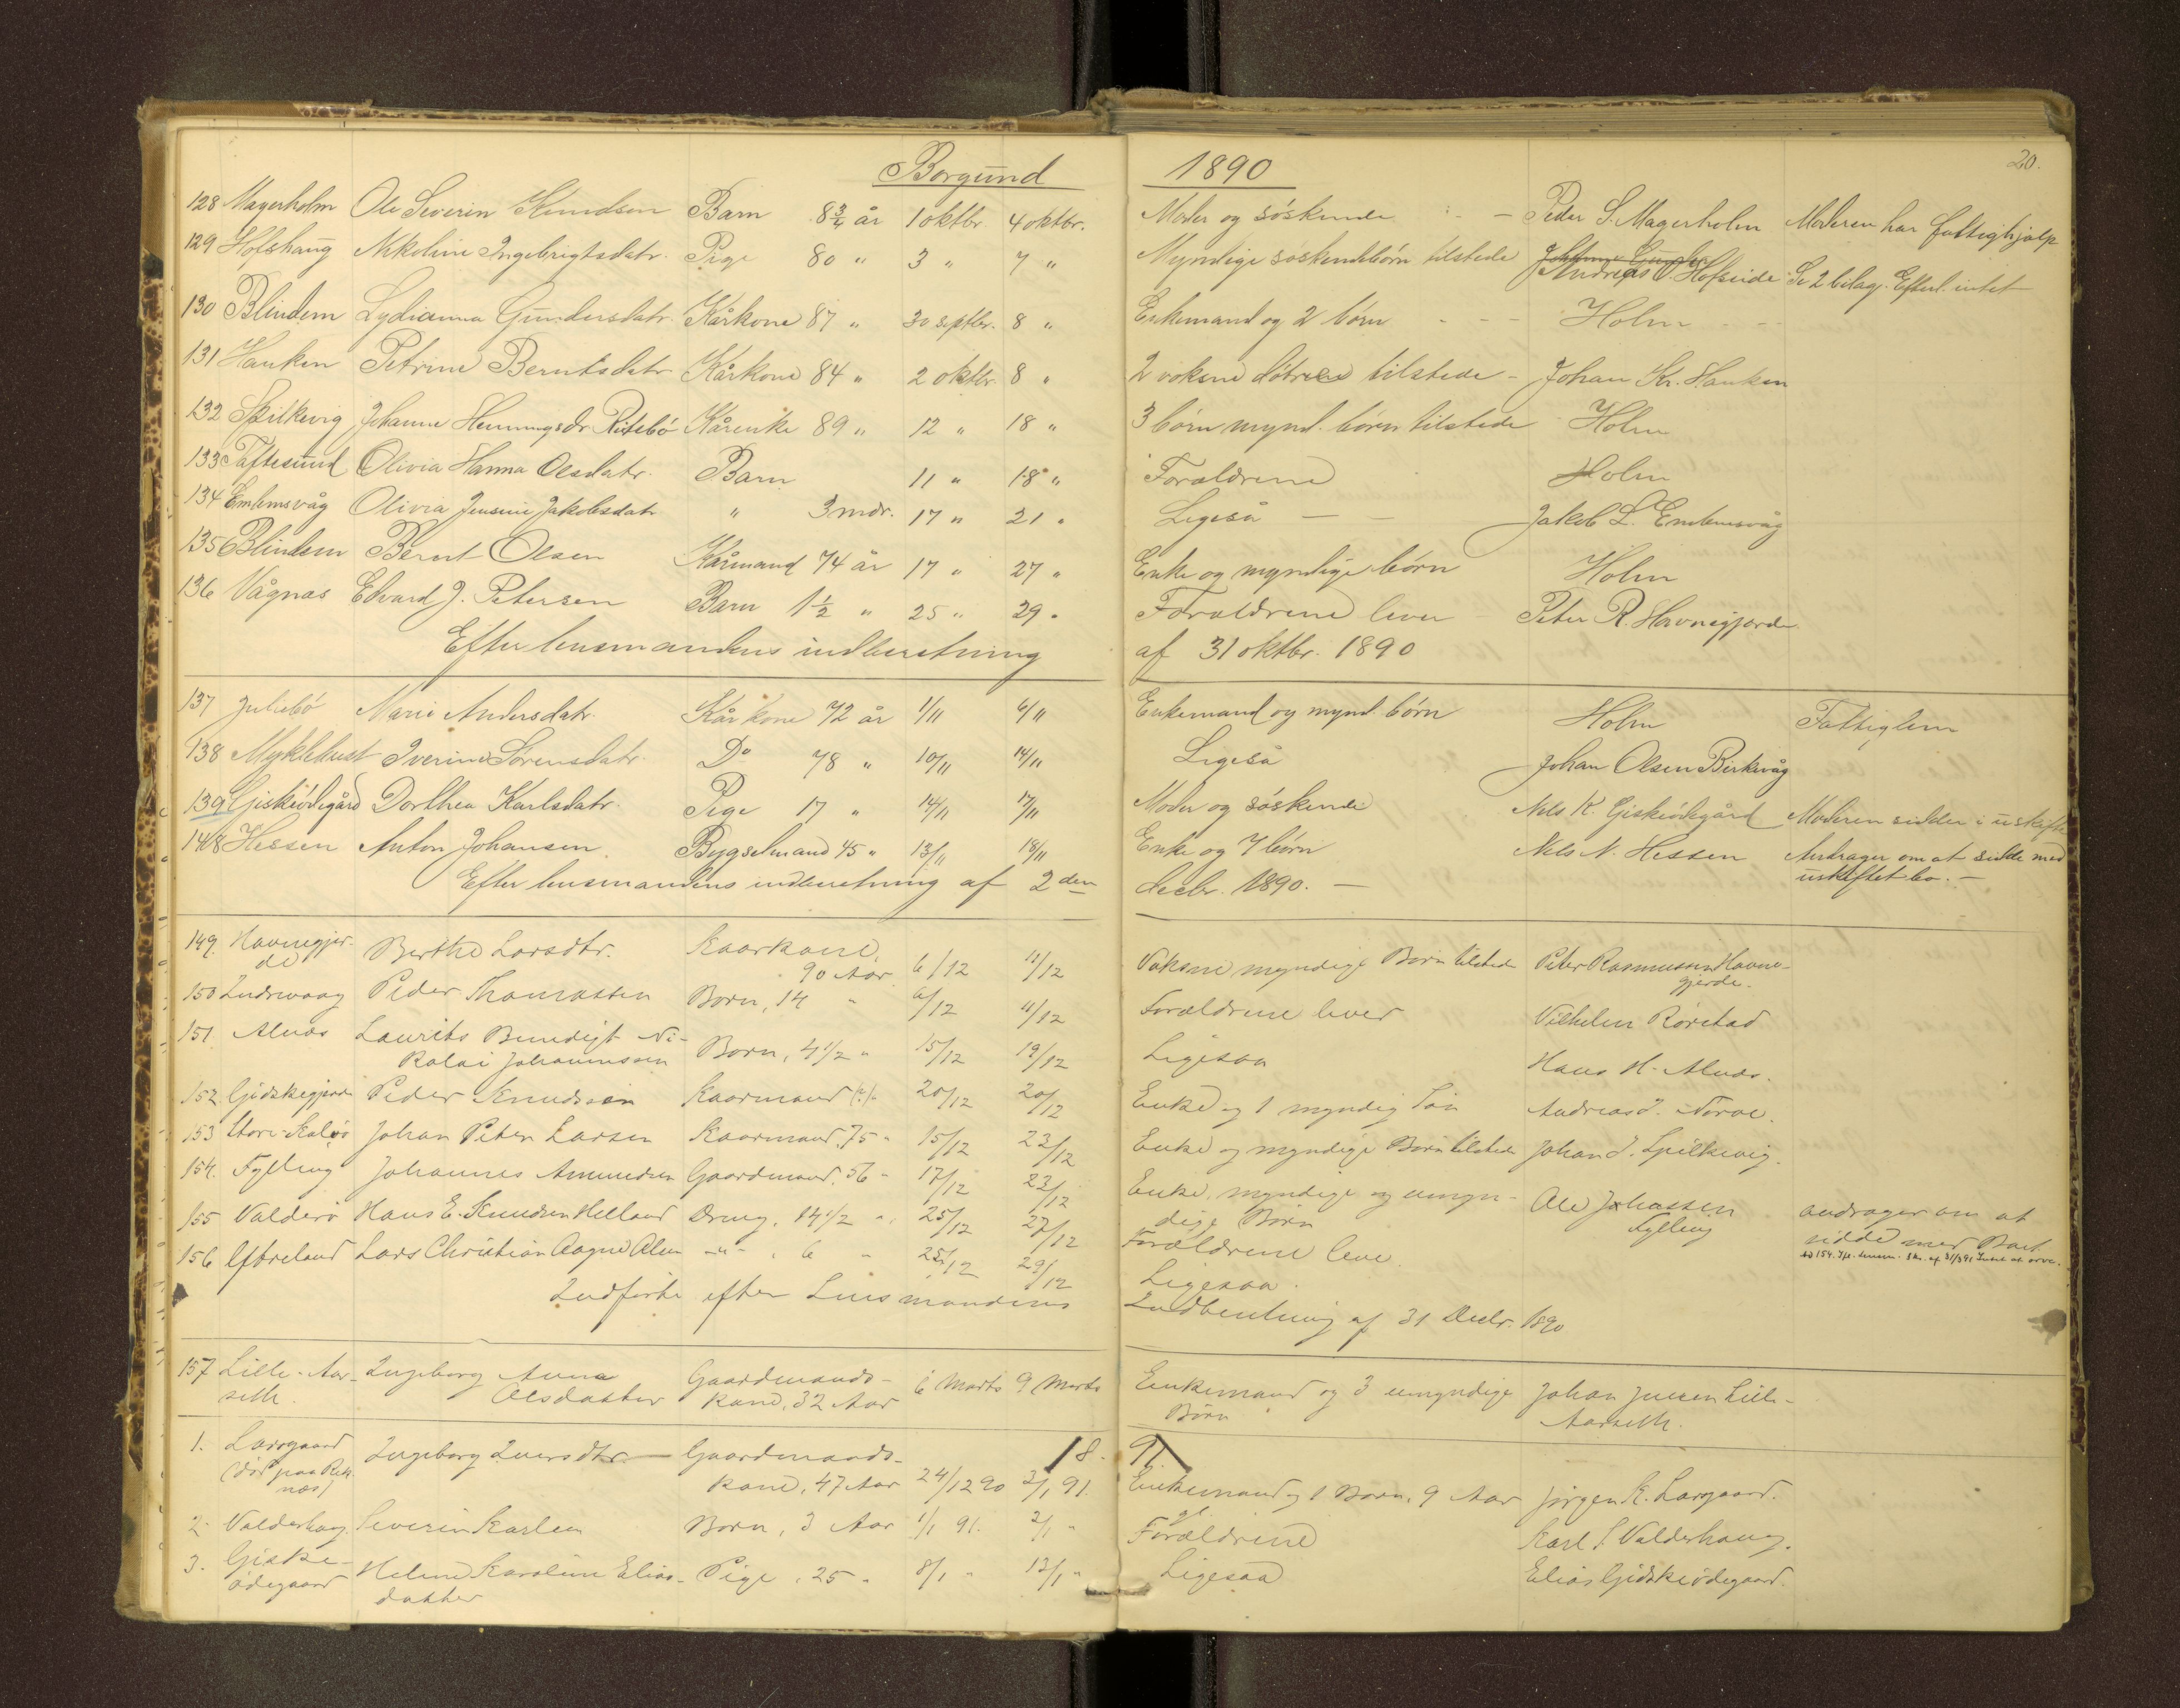 Borgund 1890 20.
128 Magerholm Ole Severin Knudsen Barn 8 3/4 år 1 oktbr. 4 oktbr. Moder og söskende - - Peder S. Magerholm Moderen har fattighjælp
129 Hofshaug Nikoline Ingebrigtsdatr. Pige 80 " 3 " 7 " Myndige söskendebörn tilstede Andreas O. Hofseide Se 2 bilag. Efterl. intet
130 Blindem Lydianna Gundersdatr. Kårkone 87 " 30 septbr. 8 " Enkemand og 2 börn - - - Holm - -
131 Hanken Petrine Berntsdatr Kårkone 84 " 2 oktbr. 8 " 2 voksne døtre tilstede - Johan Kr. Hanken
132 Spilkevig Johanne Henningsdr Ritebö Kårenke 89 " 12 " 18 " 3 börn mynd. börn tilstede Holm
133 Taftesund Olivia Hanna Olsdatr. Barn 11 " 18 " Forældrene Holm
134 Emlemsvåg Olivia Jensine Jakobsdatr " 3 mdr. 17 " 21 " Ligeså — — Jakob L. Emlemsvåg
135 Blindem Bernt Olsen Kårmand 74 år 17 " 27 " Enke og myndige börn Holm
136 Vågnæs Edvard J. Petersen Barn 1 1/2 " 25 " 29 " Forældrene lever - Peter R. Havnegjærde
Efter lensmandens indberetning af 31 oktbr. 1890
137 Julebö Marie Andersdatr. Kårkone 72 år 1/11 6/11 Enkemand og mynd. börn Holm Fattiglem
138 Myklebust Iverine Sörensdatr. Do 78 " 10/11 14/11 Ligeså Johan Olsen Birkevåg
139 Giskeödegård Dorthea Karlsdatr. Pige 17 " 14/11 17/11 Moder og söskende Nils K. Giskeödegård Moderen sidder i uskifte
148 Hessen Anton Johansen Bygselmand 45 " 13/11 18/11 Enke og 7 börn Nils N. Hessen Andrager om at sidde med
uskiftet bo. —
Efter lensmandens indberetning af 2den decbr. 1890. —
149. Havnegjer- Berthe Larsdtr. Kaarkone, 6/12 11/12 Voksne myndige Börn tilstede Peter Rasmussen Havne-
de 90 Aar gjerde.
150 Indrevaag Peder Thomassen Barn, 14 " 6/12 11/12 Forældrene lever Vilhelm Rörstad
151. Alnæs Laurits Bendigt Ni- Barn, 4 1/2 " 15/12 19/12 Ligesaa Hans H. Alnæs.
kolai Johannessen
152. Gidskegjerde Peder Knudsen Kaarmand (?) 20/12 20/12 Enke og 1 myndig Sön Andreas J. Nörve.
153 Store-Kalvö Johan Peter Larsen Kaarmand, 75 " 15/12 23/12 Enke og myndige Börn tilstede Johan J. Spilkevig.
154. Fylling Johannes Amundsen Gaardmand, 56 - 17/12 23/12 Enke, myndige og umyn- Ole Johassen andrager om at
dige Börn Fylling sidde med Boet
155 Valderö Hans E. Knudsen Helland Dreng, 14 1/2 " 25/12 27/12 Forældrene leve.
156 Lars Christian Aagne Alnæs -"- , 6 " 25/12 29/12 Ligesaa.
Indförte efter Lensmandens Indberetning af 31 Decbr. 1890
157 Lille-Aar- Ingeborg Anna Gaardmands- 6 Marts 9 Marts Enkemand og 3 umyndige Johan Jensen Lille-
seth. Olsdatter kone, 32 Aar Börn Aarseth.
18 91
1. Larsgaard Ingeborg Iversdtr — Gaardmands- 24/12 90 2/1 91. Enkemand og 1 Barn, 9 Aar Jörgen K. Larsgaard.
(död paa Rek- kone, 47 Aar gl.
næs)
2. Valderhaug Severin Karlsen Barn, 3 Aar 1/1 91. 2/1 " Forældrene Karl S. Valderhaug.
3. Giske- Helene Karoline Elias- Pige, 25 " 8/1 " 13/1 " Ligesaa Elias Gidskeödegaard.
ödegaard datter